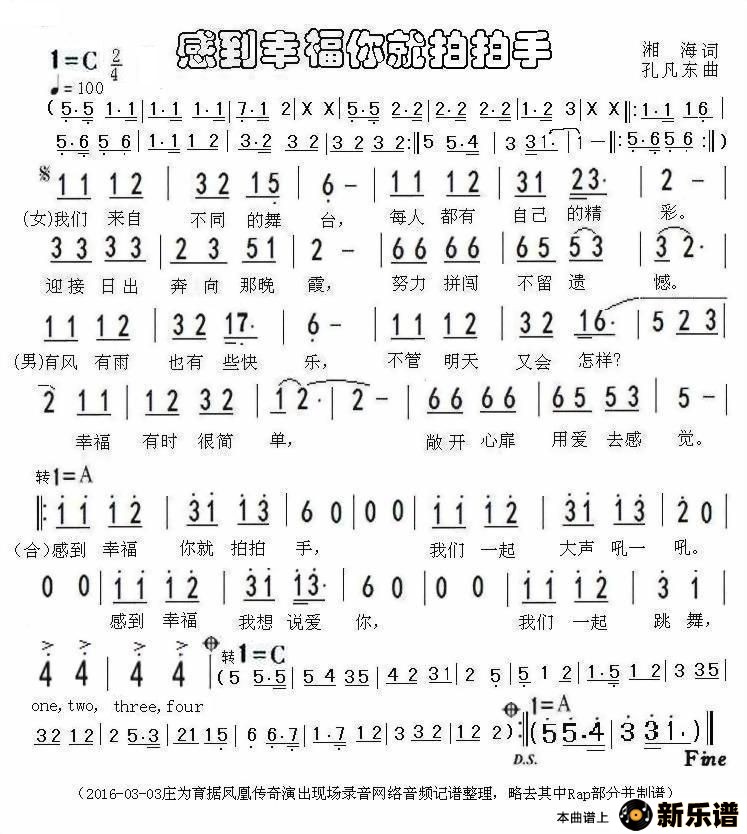 感到幸福你就拍拍手
1=C 2/4
♩=100
湘 海 词
孔凡东 曲
(5·5 1·1 | 1·1 1 | 7·1 2 | X X | 5·5 2·2 | 2·2 2 | 1·2 3 | X X ‖: 1·1 16 |
5·6 56 | 1·1 12 | 3·2 32 | 32 32 :‖ 5 5·4 | 3 31· | 1 – ‖: 5·6 5·6 :‖ )
11 12 | 32 15 | 6 – | 11 12 | 31 23· | 2 – |
(女)我们 来自 不同 的舞 台, 每人 都有 自己 的精 彩。
33 33 | 23 51 | 2 – | 66 66 | 65 53 | 3 2· |
迎接 日出 奔向 那晚 霞, 努力 拼闯 不留 遗 憾。
11 12 | 32 17· | 6 – | 11 12 | 32 16· | 523 |
(男)有风 有雨 也有 些快 乐, 不管 明天 又会 怎样?
2 11 | 12 32 | 1 2· | 2 – | 66 66 | 55 53 | 5 – |
幸福 有时 很简 单, 敞开 心扉 用爱 去感 觉。
转1=A
‖: 11 12 | 31 13 | 60 | 00 | 11 12 | 31 13 | 20 |
(合)感到 幸福 你就 拍拍 手, 我们 一起 大声 吼一 吼。
00 | 11 12 | 31 13· | 60 | 00 | 11 12 | 3 1 |
感到 幸福 我想 说爱 你, 我们 一起 跳 舞,
4 4 | 4 4 | 转1=C (5 5·5 | 5 435 | 42 31 | 2·5 | 5 1·2 | 1·5 12 | 3·5 |
one,two, three,four
32 12 | 5·3 | 2·3 | 21 15 | 6 6·7 | 1·7 12 | 3 33 | 12 12 ) :‖ 1=A (5 55·4 | 3 331· ) ‖
D.S. Fine
(2016-03-03庄为育据凤凰传奇演出现场录音网络音频记谱整理，略去其中Rap部分并制谱)
本曲谱上 新乐谱